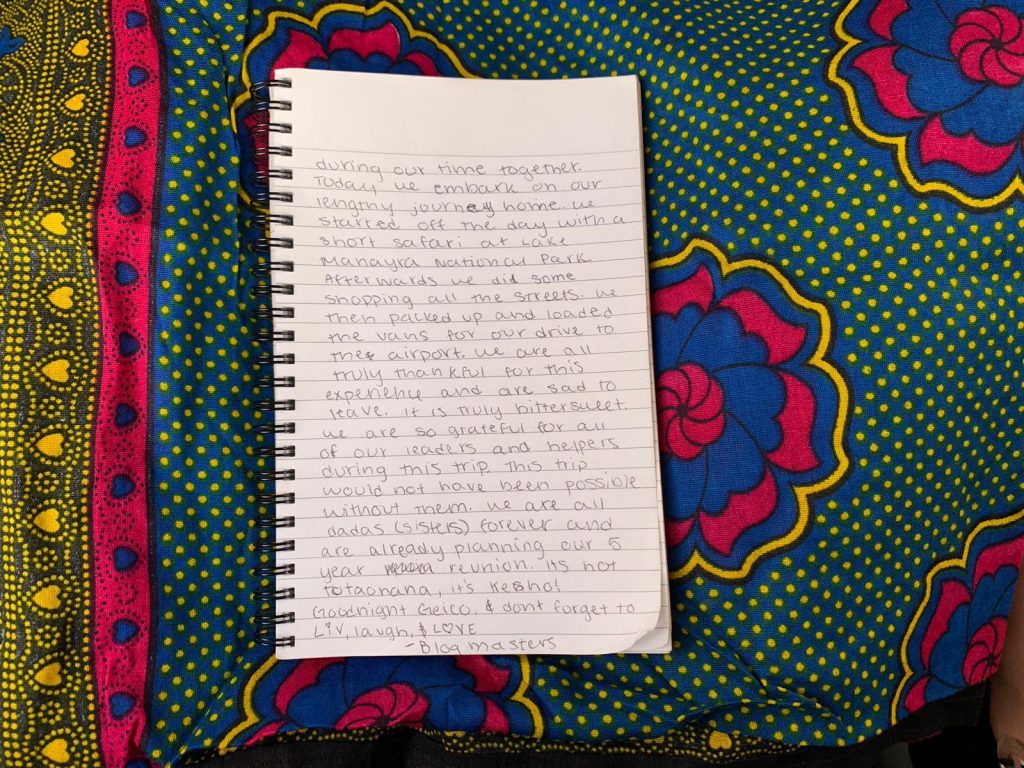 during our time together.
Today, we embark on our
lengthy journey home. we
started off the day with a
short safari at Lake
Manayra National Park.
Afterwards we did some
shopping all the streets. we
then packed up and loaded
the vans for our drive to
the airport. we are all
truly thankful for this
experience and are sad to
leave. It is truly bittersweet.
we are so grateful for all
of our leaders and helpers
during this trip. This trip
would not have been possible
without them. we are all
dadas (sisters) forever and
are already planning our 5
year reunion. Its not
totaonana, it's kesho!
Goodnight Geico. & dont forget to
LiV, laugh, & L♡VE
-Blog masters